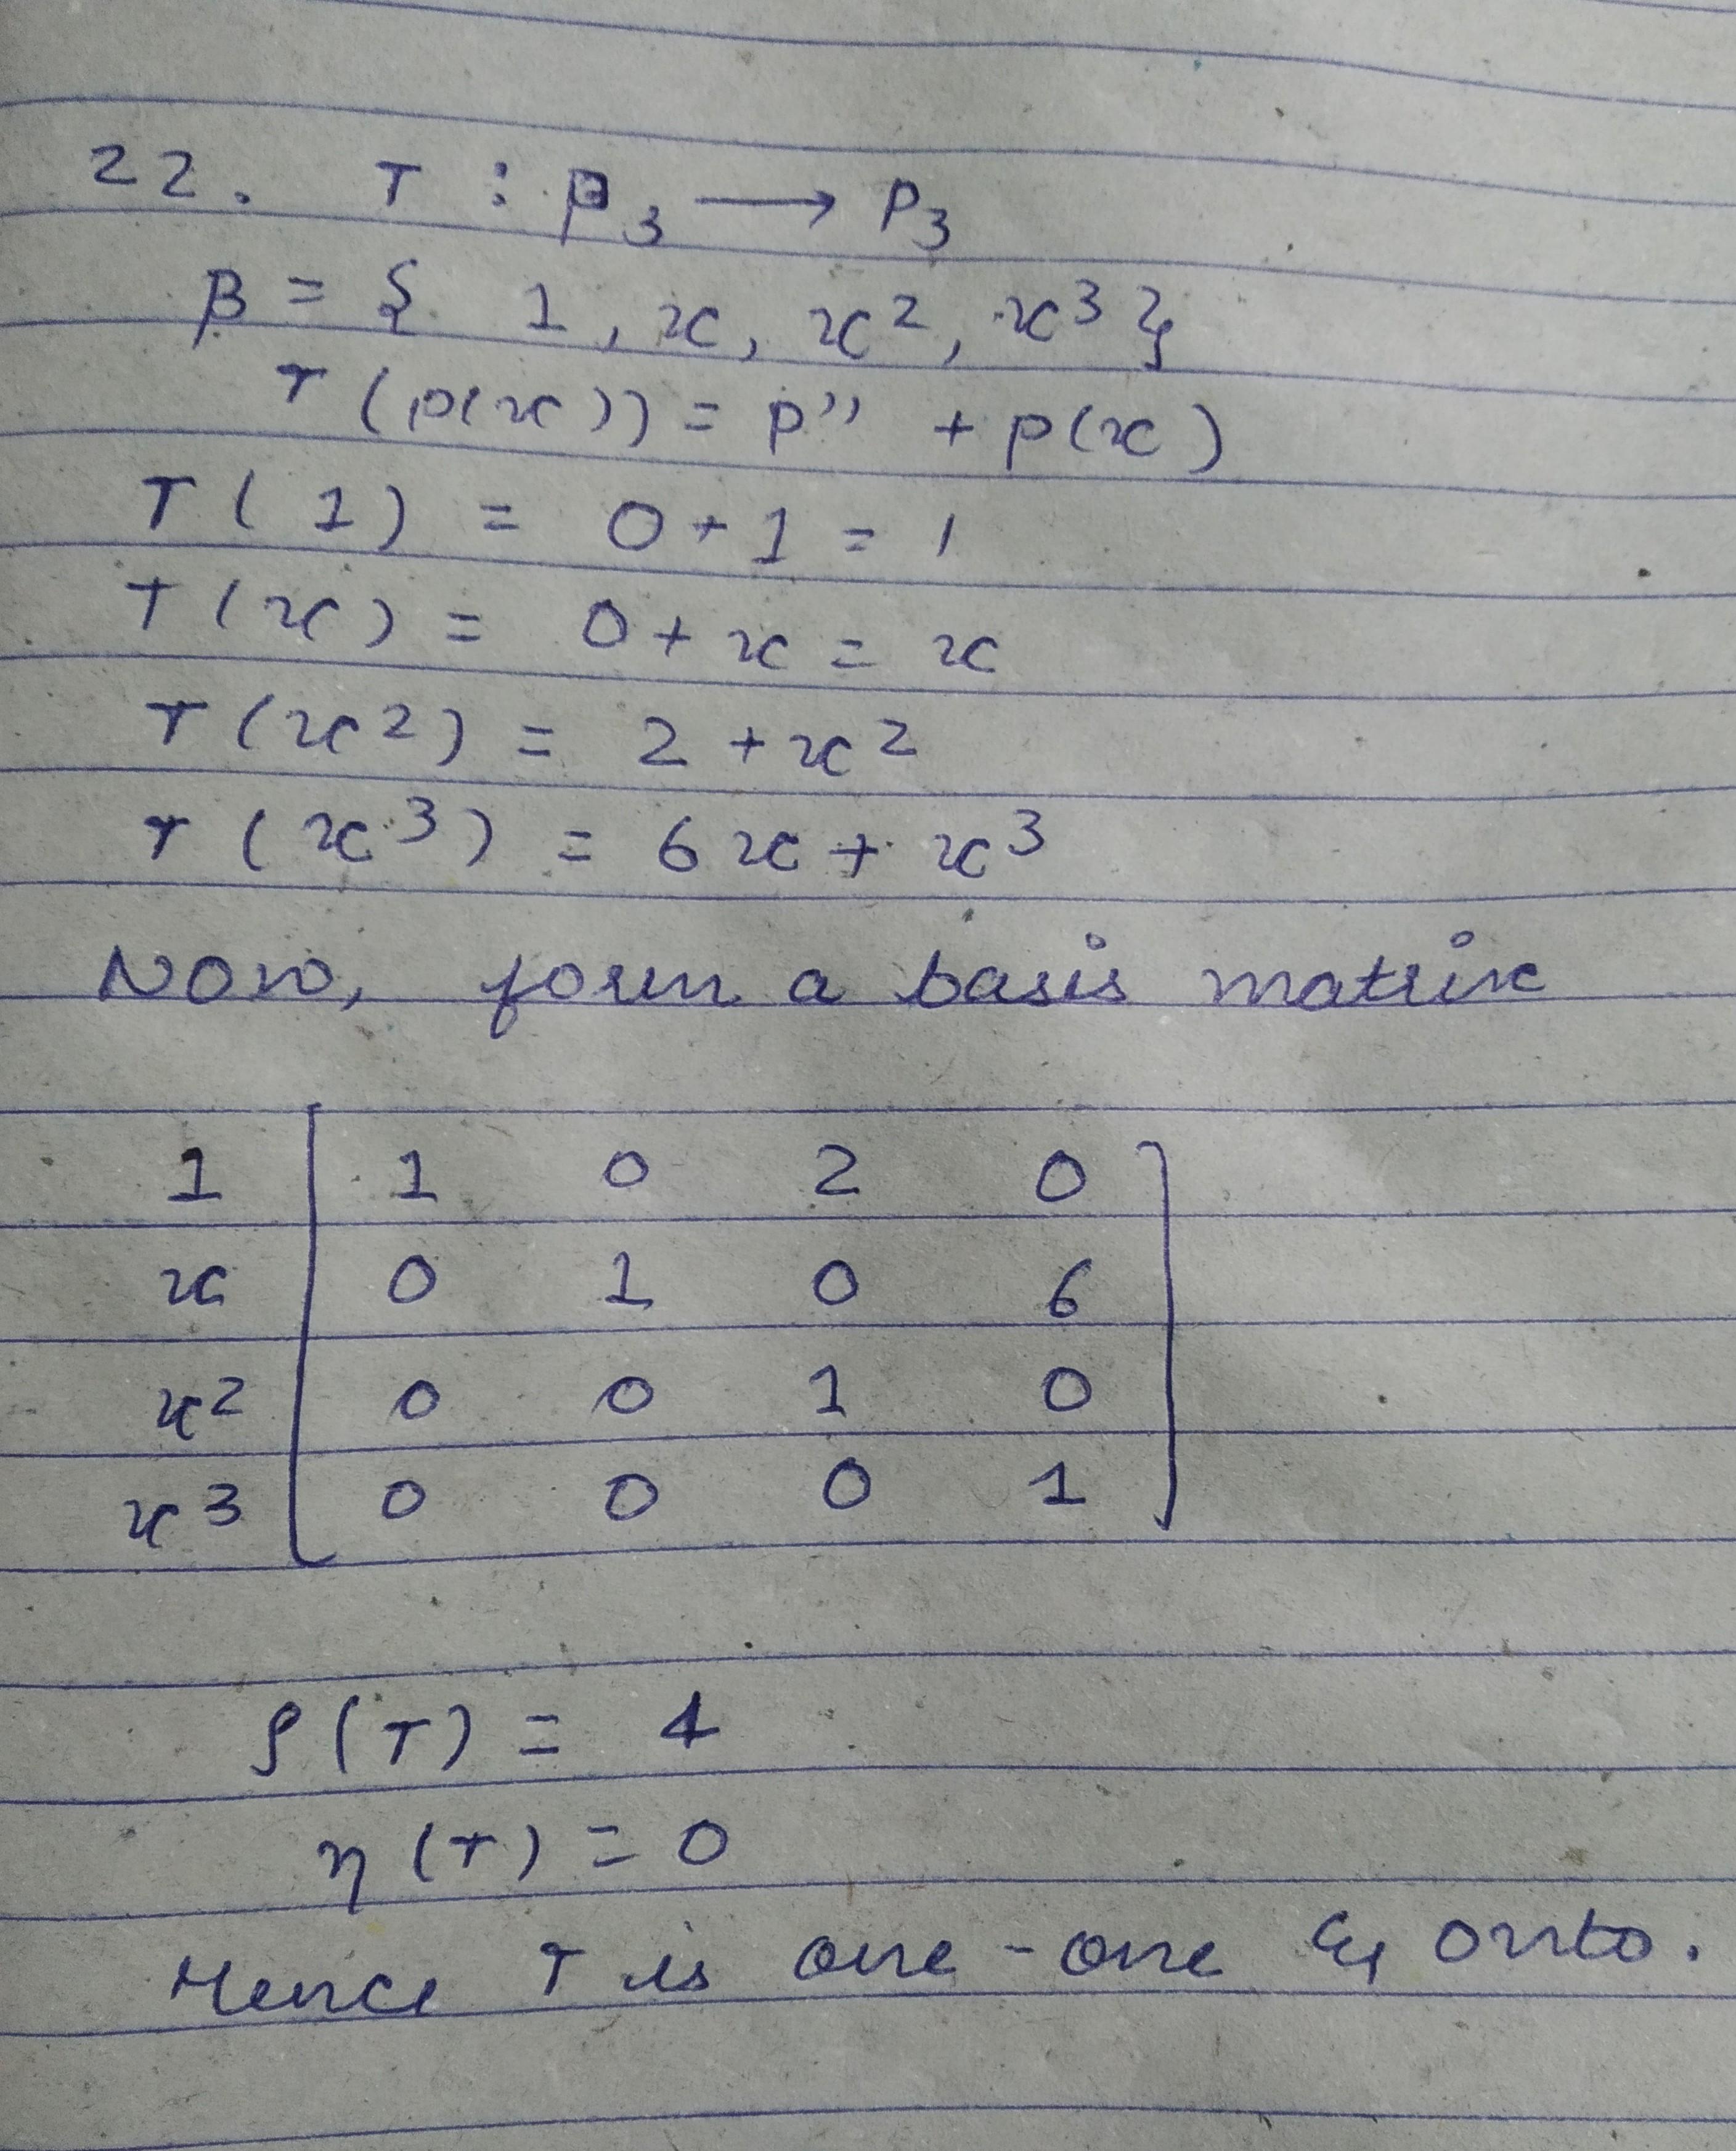 22. T : P3 → P3
β = { 1, x, x², x³ }
T (p(x)) = p'' + p(x)
T ( 1 ) = 0 + 1 = 1
T ( x ) = 0 + x = x
T ( x² ) = 2 + x²
T ( x³ ) = 6x + x³
Now, form a basis matrix
1 [ 1 0 2 0 ]
x 0 1 0 6
x² 0 0 1 0
x³ 0 0 0 1
ρ(T) = 4
η(T) = 0
Hence T is one-one & onto.